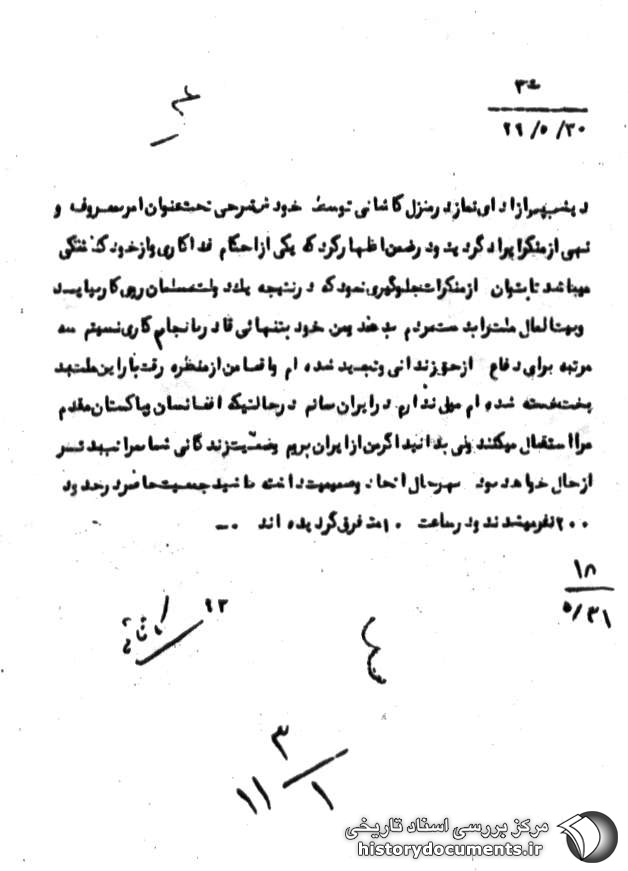 ۳۴
۲۹/۵/۳۰
دیشب پس از ادای نماز در منزل کاشانی توسط خود شرحی تحت عنوان امر معروف و
نهی از منکر ایراد گردید و در ضمن اظهار کرد که یکی از احکام فداکاری و از خود گذشتگی
میباشد تا بتوان از منکرات جلوگیری نمود که در نتیجه یک دولت مسلمان روی کار بیاید
و بیت المال ملت را بدست مردم بدهد من خود بتنهائی قادر بانجام کاری نیستم سه
مرتبه برای دفاع از حق زندانی و تبعید شده ام واقعا من از منظره رقت بار این ملت بد
بخت خسته شده ام میل ندارم در ایران بمانم در حالتیکه افغانستان و پاکستان مقدم
مرا استقبال میکنند ولی بدانید اگر من از ایران بروم وضعیت زندگانی شما بدتر
از حال خواهد بود بهرحال اتحاد و صمیمیت داشته باشید جمعیت حاضر در حدود
۲۰۰ نفر میشدند و در ساعت ۱۰ متفرق گردیده اند ۰—
۱۸
۵/۳۱
۹۲
کاشانی
۳
۱۱/۱
مرکز بررسی اسناد تاریخی
historydocuments.ir